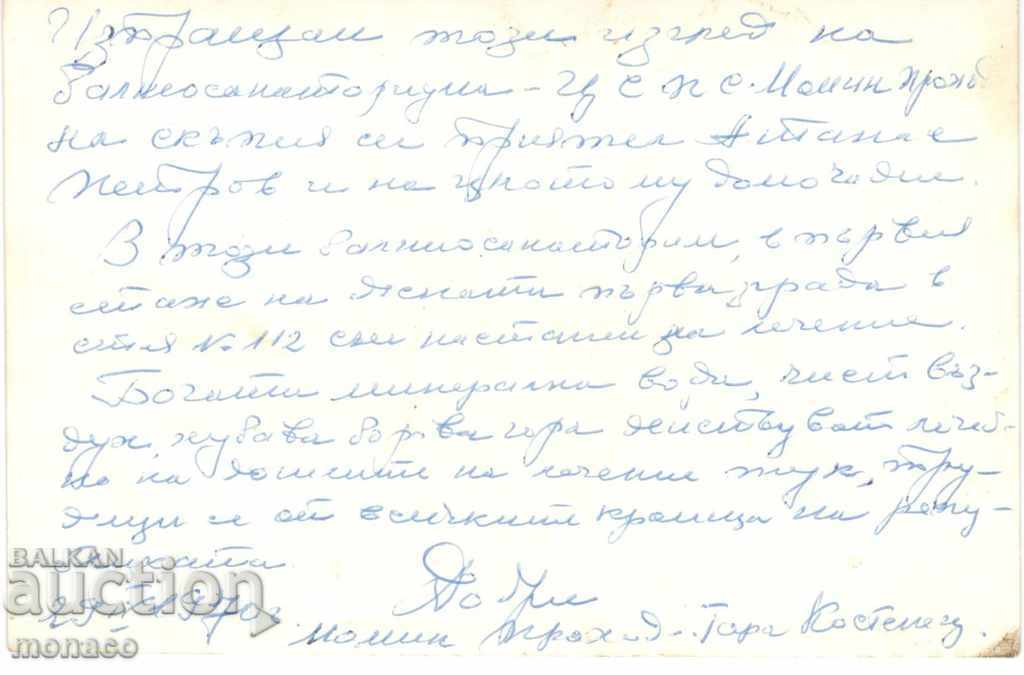 Изпращам този изглед на
балнеосанаториума - ЦСПС. Момин проход
на скъпия си приятел Атанас
Петров и на цялото му домочадие.
В този балнеосанаториум, в първия
етаж на дясната първа сграда в
стая № 112 съм настанен за лечение.
Богата минерална вода, чист въз-
дух, хубава борова гора действуват лечеб-
но на дошлите на лечение тук, тру-
дещи се от всичките краища на репу-
бликата.
1970 г. Добри
Момин проход - Гара Костенец.
BALKAN
auction
monaco